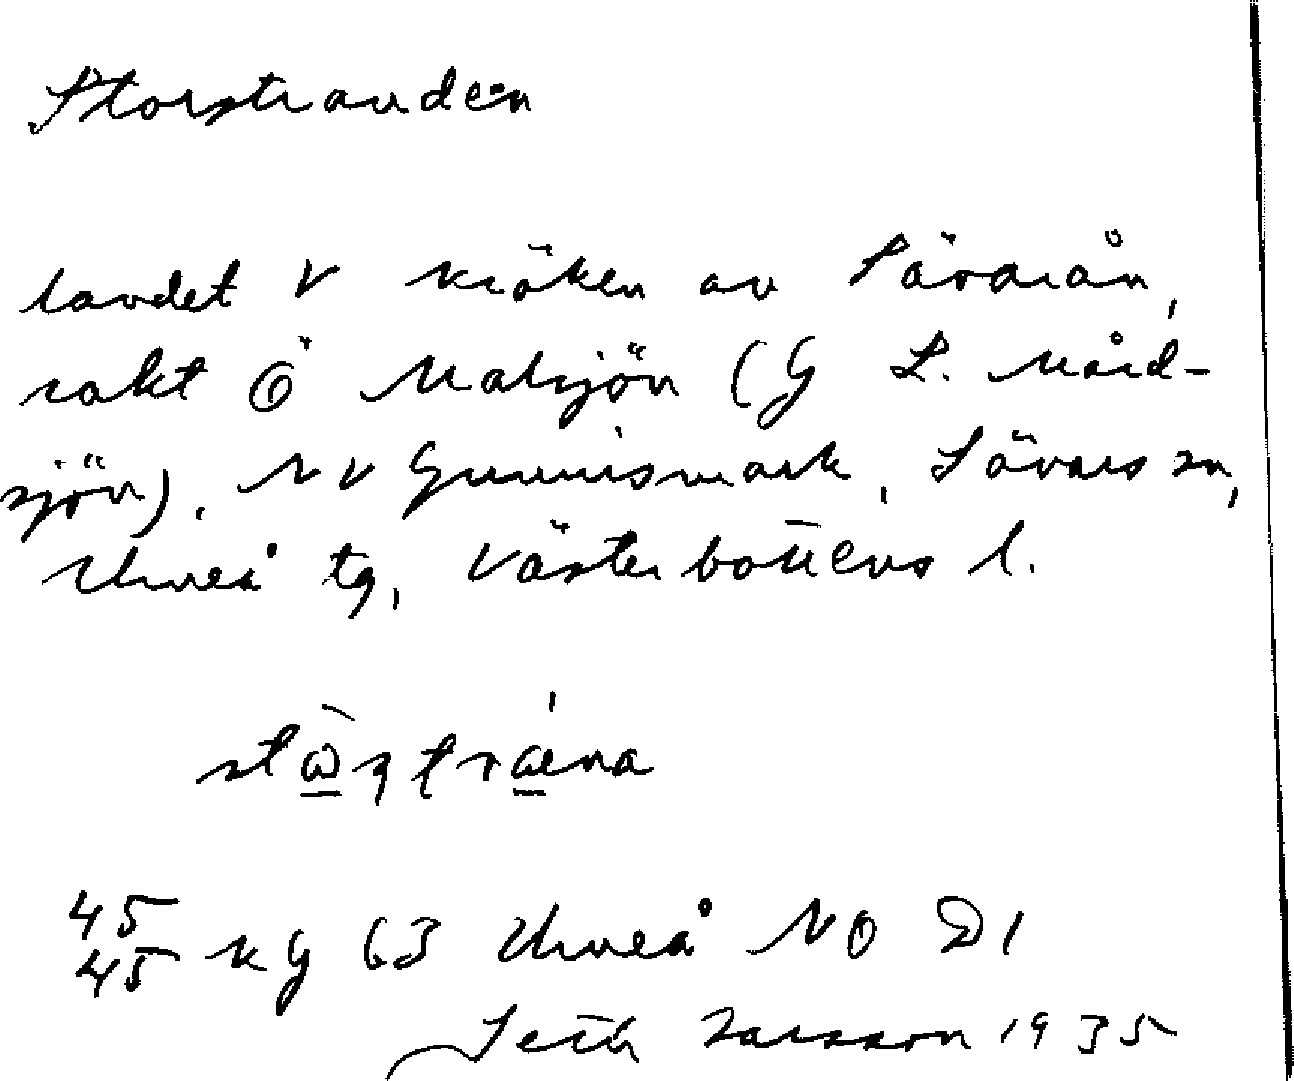 Storstranden
landet V kröken av Sävarån,
rakt Ö Malsjön (G L. Mård-
sjön), NV Gunnismark, Sävars sn,
Umeå tg, Västerbottens l.
45
45 KG 63 Umeå NO D1
Seth Larsson 1935